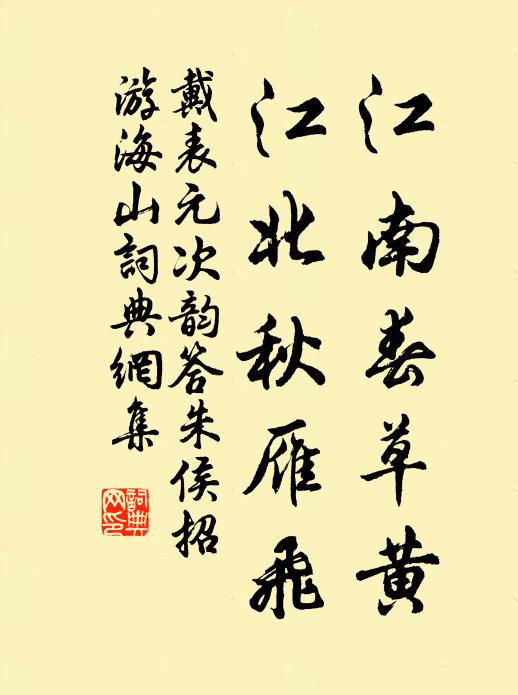 江南春草黄
江北秋雁飛
戴表元次韵答朱侯招
游海山詞典網集
詞典网印